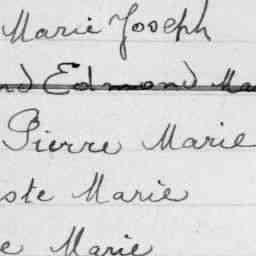 Marie Joseph
nd Edmond Ma
Pierre Marie
ste Marie
e Marie